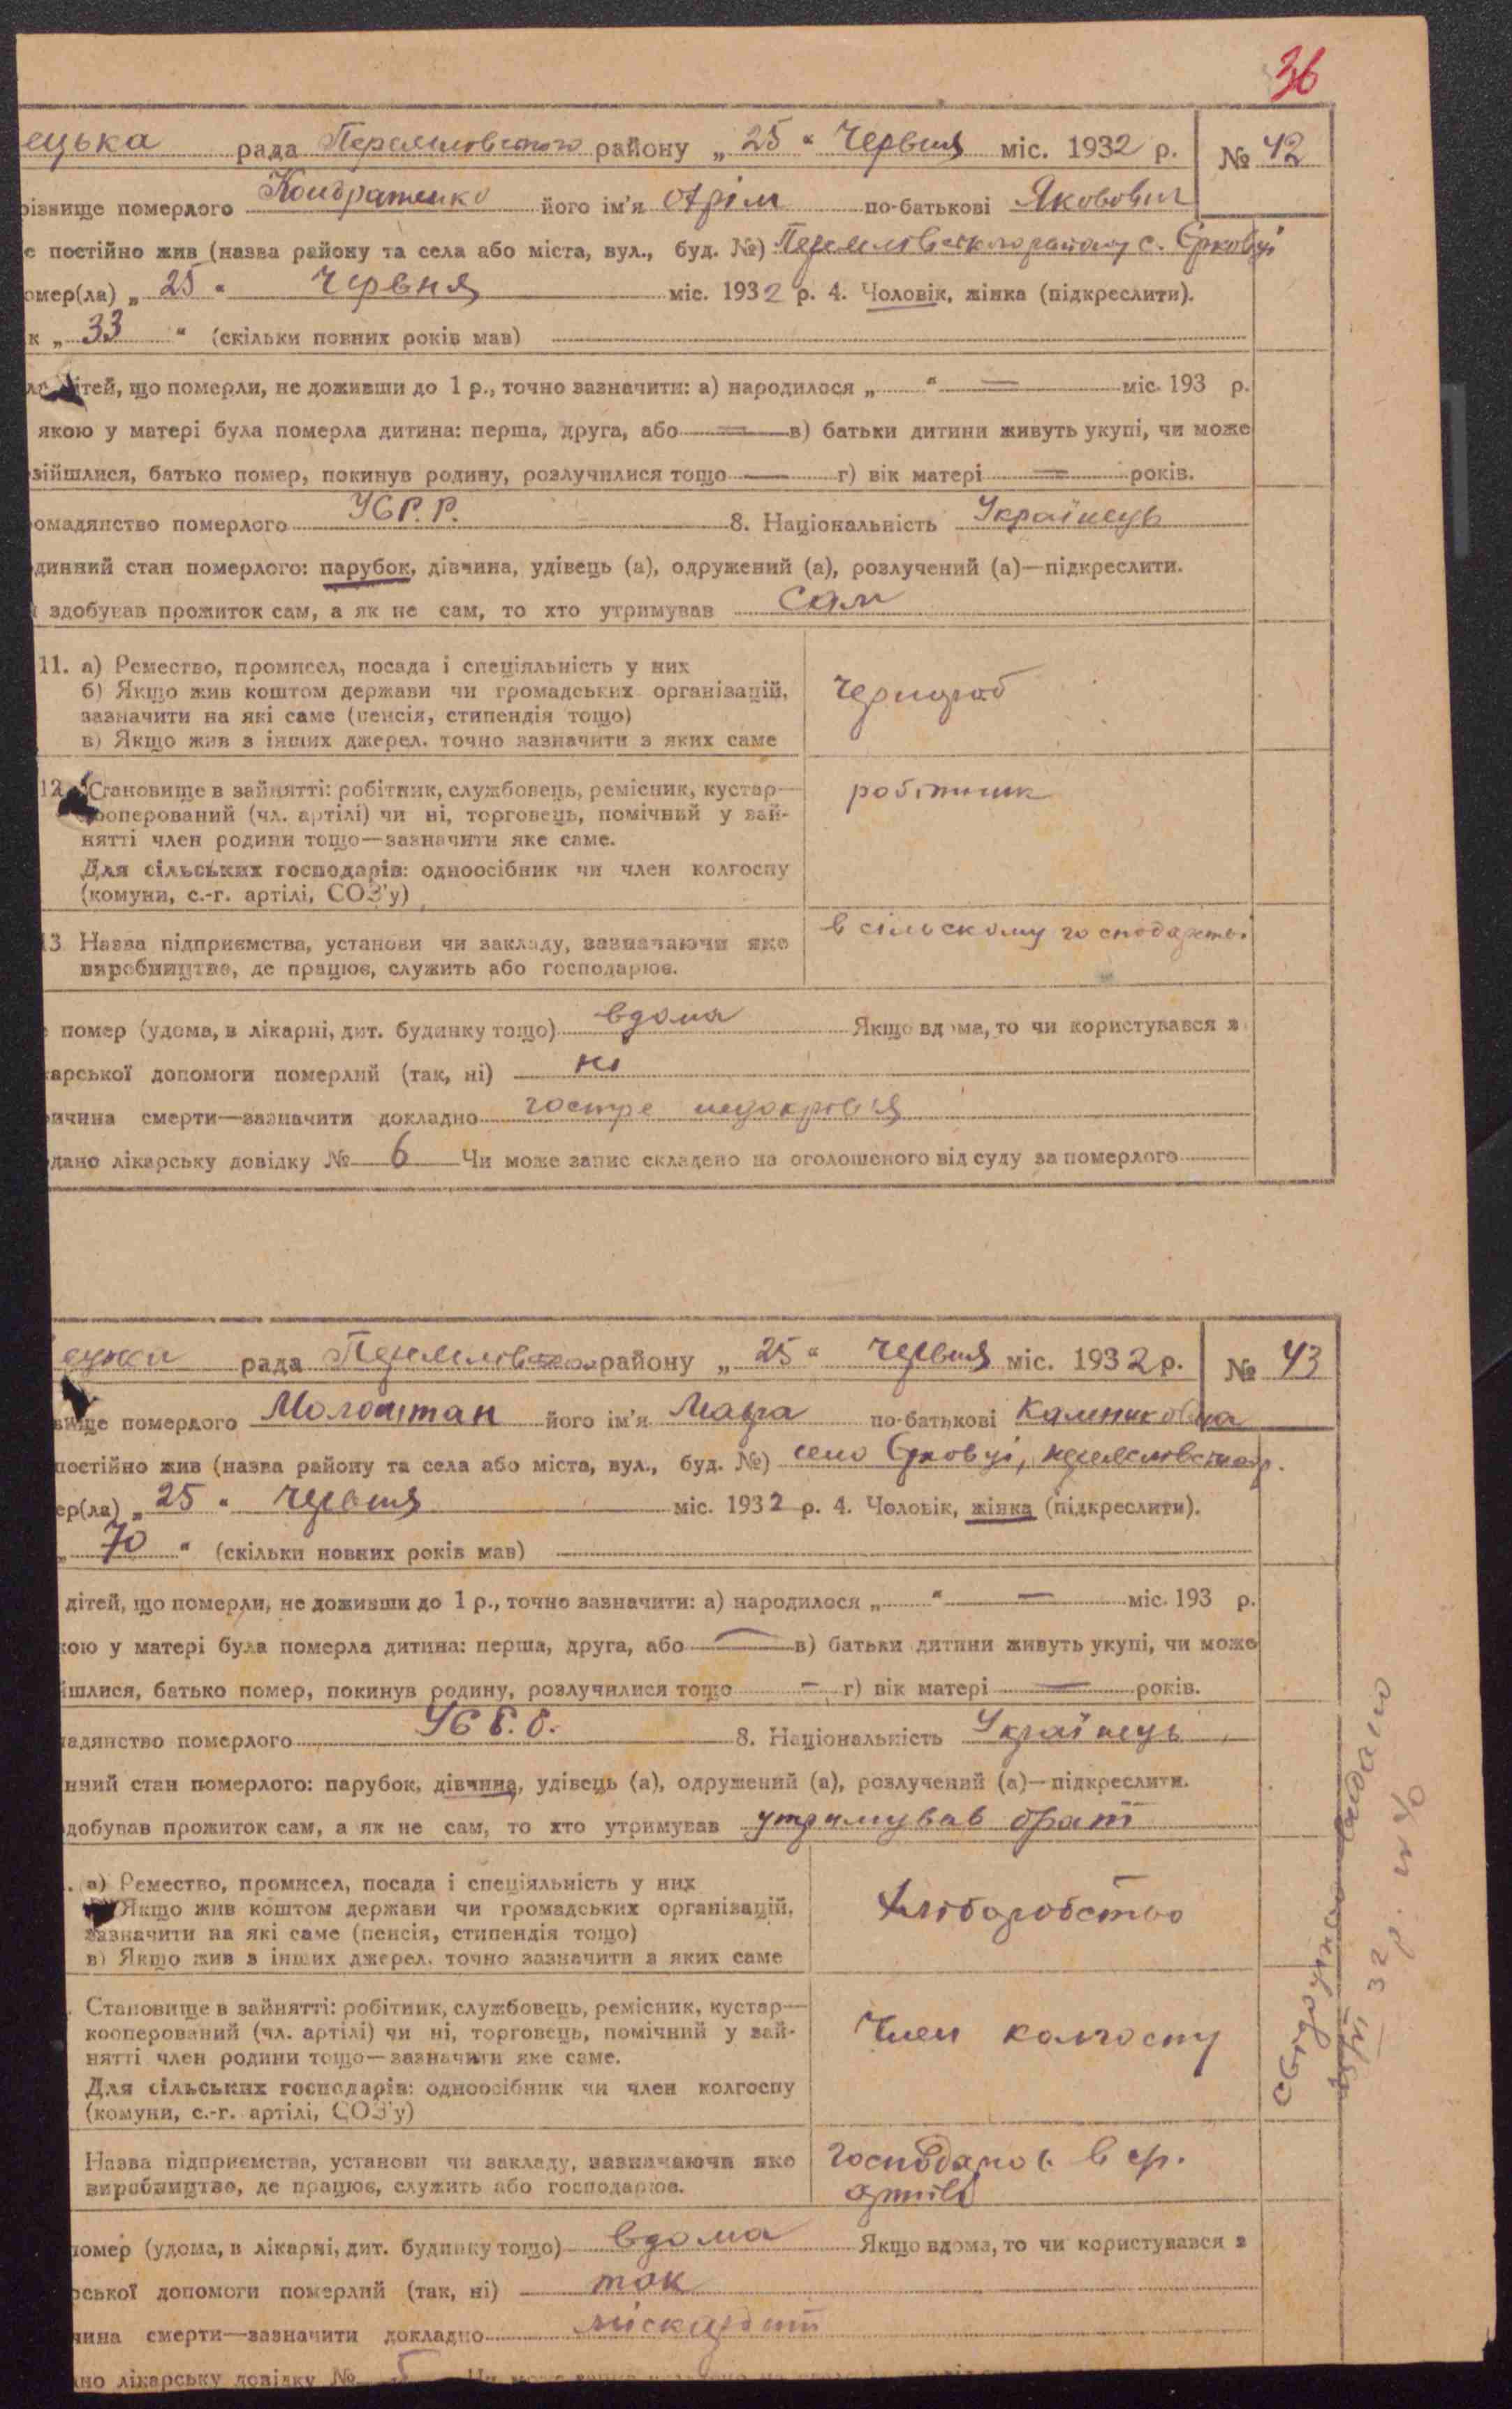 36
ецька рада Переяславського району „ 25 “ Червня міс. 1932 р. № 42
різвище померлого Кондратенко його ім'я по-батькові Якович
е постійно жив (назва району та села або міста, вул., буд. №) с. Єрковці
омер(ла) „ 25 “ Червня міс. 1932 р. 4. Чоловік, жінка (підкреслити).
к „ 33 “ (скільки повних років мав)
ітей, що померли, не доживши до 1 р., точно зазначити: а) народилося „ “ — міс. 193 р.
якою у матері була померла дитина: перша, друга, або — в) батьки дитини живуть укупі, чи може
зійшлися, батько помер, покинув родину, розлучилися тощо — г) вік матері — років.
омадянство померлого УСР.Р. 8. Національність Українець
динний стан померлого: парубок, дівчина, удівець (а), одружений (а), розлучений (а)—підкреслити.
здобував прожиток сам, а як не сам, то хто утримував сам
11. а) Ремество, промисел, посада і спеціяльність у них
б) Якщо жив коштом держави чи громадських організацій,
зазначити на які саме (пенсія, стипендія тощо)
в) Якщо жив з інших джерел, точно зазначити з яких саме
чернороб
12. Становище в зайнятті: робітник, службовець, ремісник, кустар—
кооперований (чл. артілі) чи ні, торговець, помічний у зай-
нятті член родини тощо—зазначити яке саме.
Для сільських господарів: одноосібник чи член колгоспу
(комуни, с.-г. артілі, СОЗ'у)
робітник
13 Назва підприємства, установи чи закладу, зазначаючи яке
виробництво, де працює, служить або господарює.
в сільскому господарстві
помер (удома, в лікарні, дит. будинку тощо) вдома Якщо вдома, то чи користувався з
карської допомоги померлий (так, ні) ні
ричина смерти—зазначити докладно гостре недокровʼя
дано лікарську довідку № 6 Чи може запис складено на оголошеного від суду за померлого
рада району „ 25 “ червня міс. 1932 р. № 43
вище померлого Молоштан його ім'я по-батькові
постійно жив (назва району та села або міста, вул., буд. №) село Єрковці,
ер(ла) „ 25 “ червня міс. 1932 р. 4. Чоловік, жінка (підкреслити).
„ 70 “ (скільки повних років мав)
дітей, що померли, не доживши до 1 р., точно зазначити: а) народилося „ “ — міс. 193 р.
кою у матері була померла дитина: перша, друга, або — в) батьки дитини живуть укупі, чи може
йшлися, батько помер, покинув родину, розлучилися тощо — г) вік матері — років.
адянство померлого 8. Національність Українець
нний стан померлого: парубок, дівчина, удівець (а), одружений (а), розлучений (а)—підкреслити.
добував прожиток сам, а як не сам, то хто утримував утримував брат
. а) Ремество, промисел, посада і спеціяльність у них
Якщо жив коштом держави чи громадських організацій,
зазначити на які саме (пенсія, стипендія тощо)
в) Якщо жив з інших джерел, точно зазначити з яких саме
Хліборобство
Становище в зайнятті: робітник, службовець, ремісник, кустар—
кооперований (чл. артілі) чи ні, торговець, помічний у зай-
нятті член родини тощо—зазначити яке саме.
Для сільських господарів: одноосібник чи член колгоспу
(комуни, с.-г. артілі, СОЗ'у)
Член колгоспу
Назва підприємства, установи чи закладу, зазначаючи яке
виробництво, де працює, служить або господарює.
в ср.
артілі
помер (удома, в лікарні, дит. будинку тощо) вдома Якщо вдома, то чи користувався з
рської допомоги померлий (так, ні) так
чина смерти—зазначити докладно міокардит
но лікарську довідку № 5
32 р.